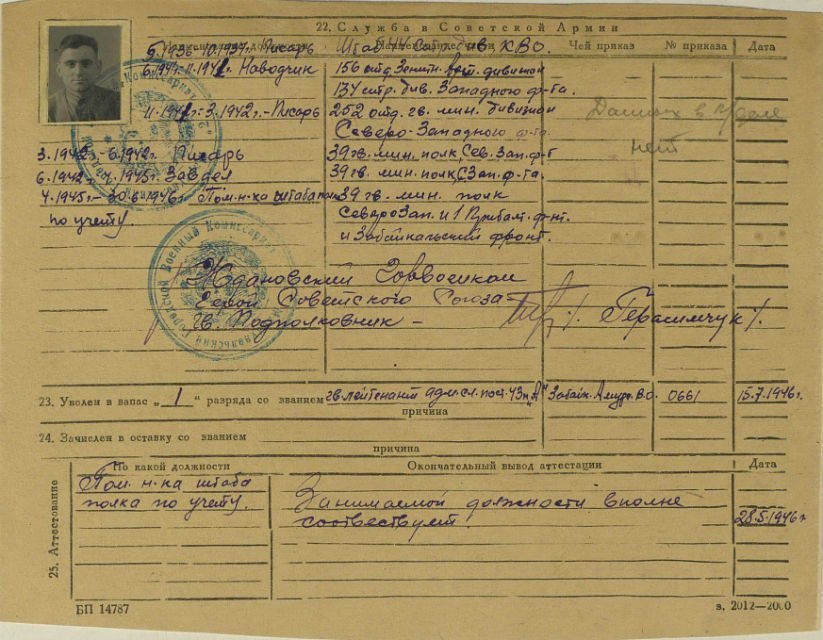 22. Служба в Советской Армии
Чей приказ № приказа Дата
9.1936-10.1937г. Писарь Штаб КВО.
11.1941г. Наводчик 156 отд. Зенит. дивизион
134 стр. див. Западного ф-та.
3.1942г.-Писарь 252 отд. гв. мин. дивизион
Северо-Западного ф-та
Данных в УДеле
нет
3.1942г.-6.1942г. Писарь 39 гв. мин. полк, Сев. Зап. ф-т
6.1942г.-1945г. Завдел 39 гв. мин. полк, С.Зап. ф-та.
4.1945г.-30.6-1946г. Пом. н-ка штаба полка 39 гв. мин. полк
по учету. Северо Зап. и 1 Прибалт. ф-нт.
и Забайкальский фронт.
Городской Военный Комиссариат
Ждановский Горвоенком
Герой Советского Союза
Гв. Подполковник - /Герасимчук/.
23. Уволен в запас „ 1 " разряда со званием гв. лейтенант адм. сл. пост. 43п„А" Забайк. Амурс. В.О. 0661 15.7.1946г.
причина
24. Зачислен в отставку со званием
причина
25. Аттестование
По какой должности Окончательный вывод аттестации Дата
Пом. н-ка штаба
полка по учету. Занимаемой должности вполне
соотвествует. 28.5.1946г
БП 14787 з. 2012—2000